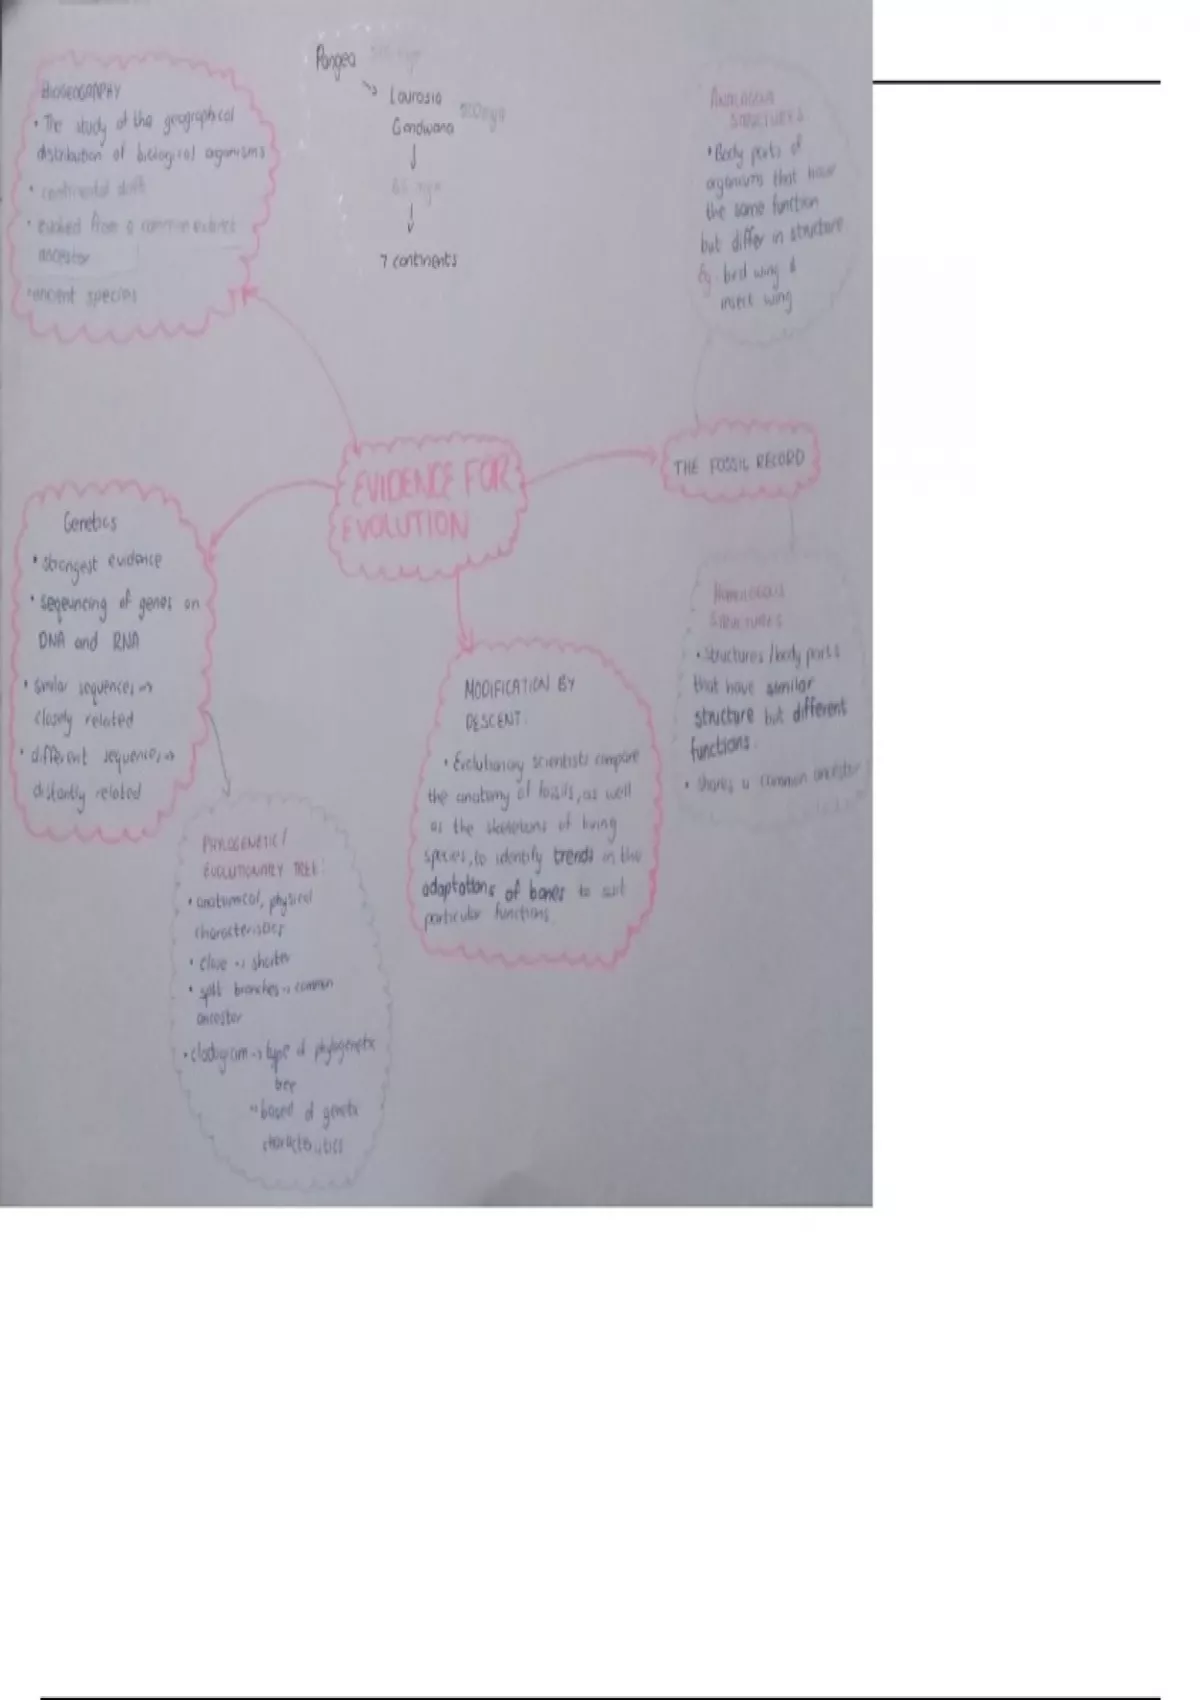 BIOGEOGRAPHY
• The study of the geographical
distribution of biological organisms
• continental drift
• evolved from a common extinct
ancestor
• ancient species
Pangea
↳ Laurasia 200mya
Gondwana
↓
65 mya
↓
7 continents
ANALOGOUS
STRUCTURES
• Body parts of
organisms that have
the same function
but differ in structure
Eg. bird wing &
insect wing
THE FOSSIL RECORD
EVIDENCE FOR
EVOLUTION
Genetics
• strongest evidence
• seqeuncing of genes on
DNA and RNA
• similar sequences →
closely related
• different sequences →
distantly related
HOMOLOGOUS
STRUCTURES
• structures/body parts
that have similar
structure but different
functions.
• shares a common ancestor
MODIFICATION BY
DESCENT:
• Evolutionary scientists compare
the anatomy of fossils, as well
as the skeletons of living
species, to identify trends in the
adaptations of bones to suit
particular functions.
PHYLOGENETIC/
EVOLUTIONARY TREE:
• anatomical, physical
characteristics
• close → shorter
• split branches → common
ancestor
• cladogram → type of phylogenetic
tree
→ based of genetic
characteristics